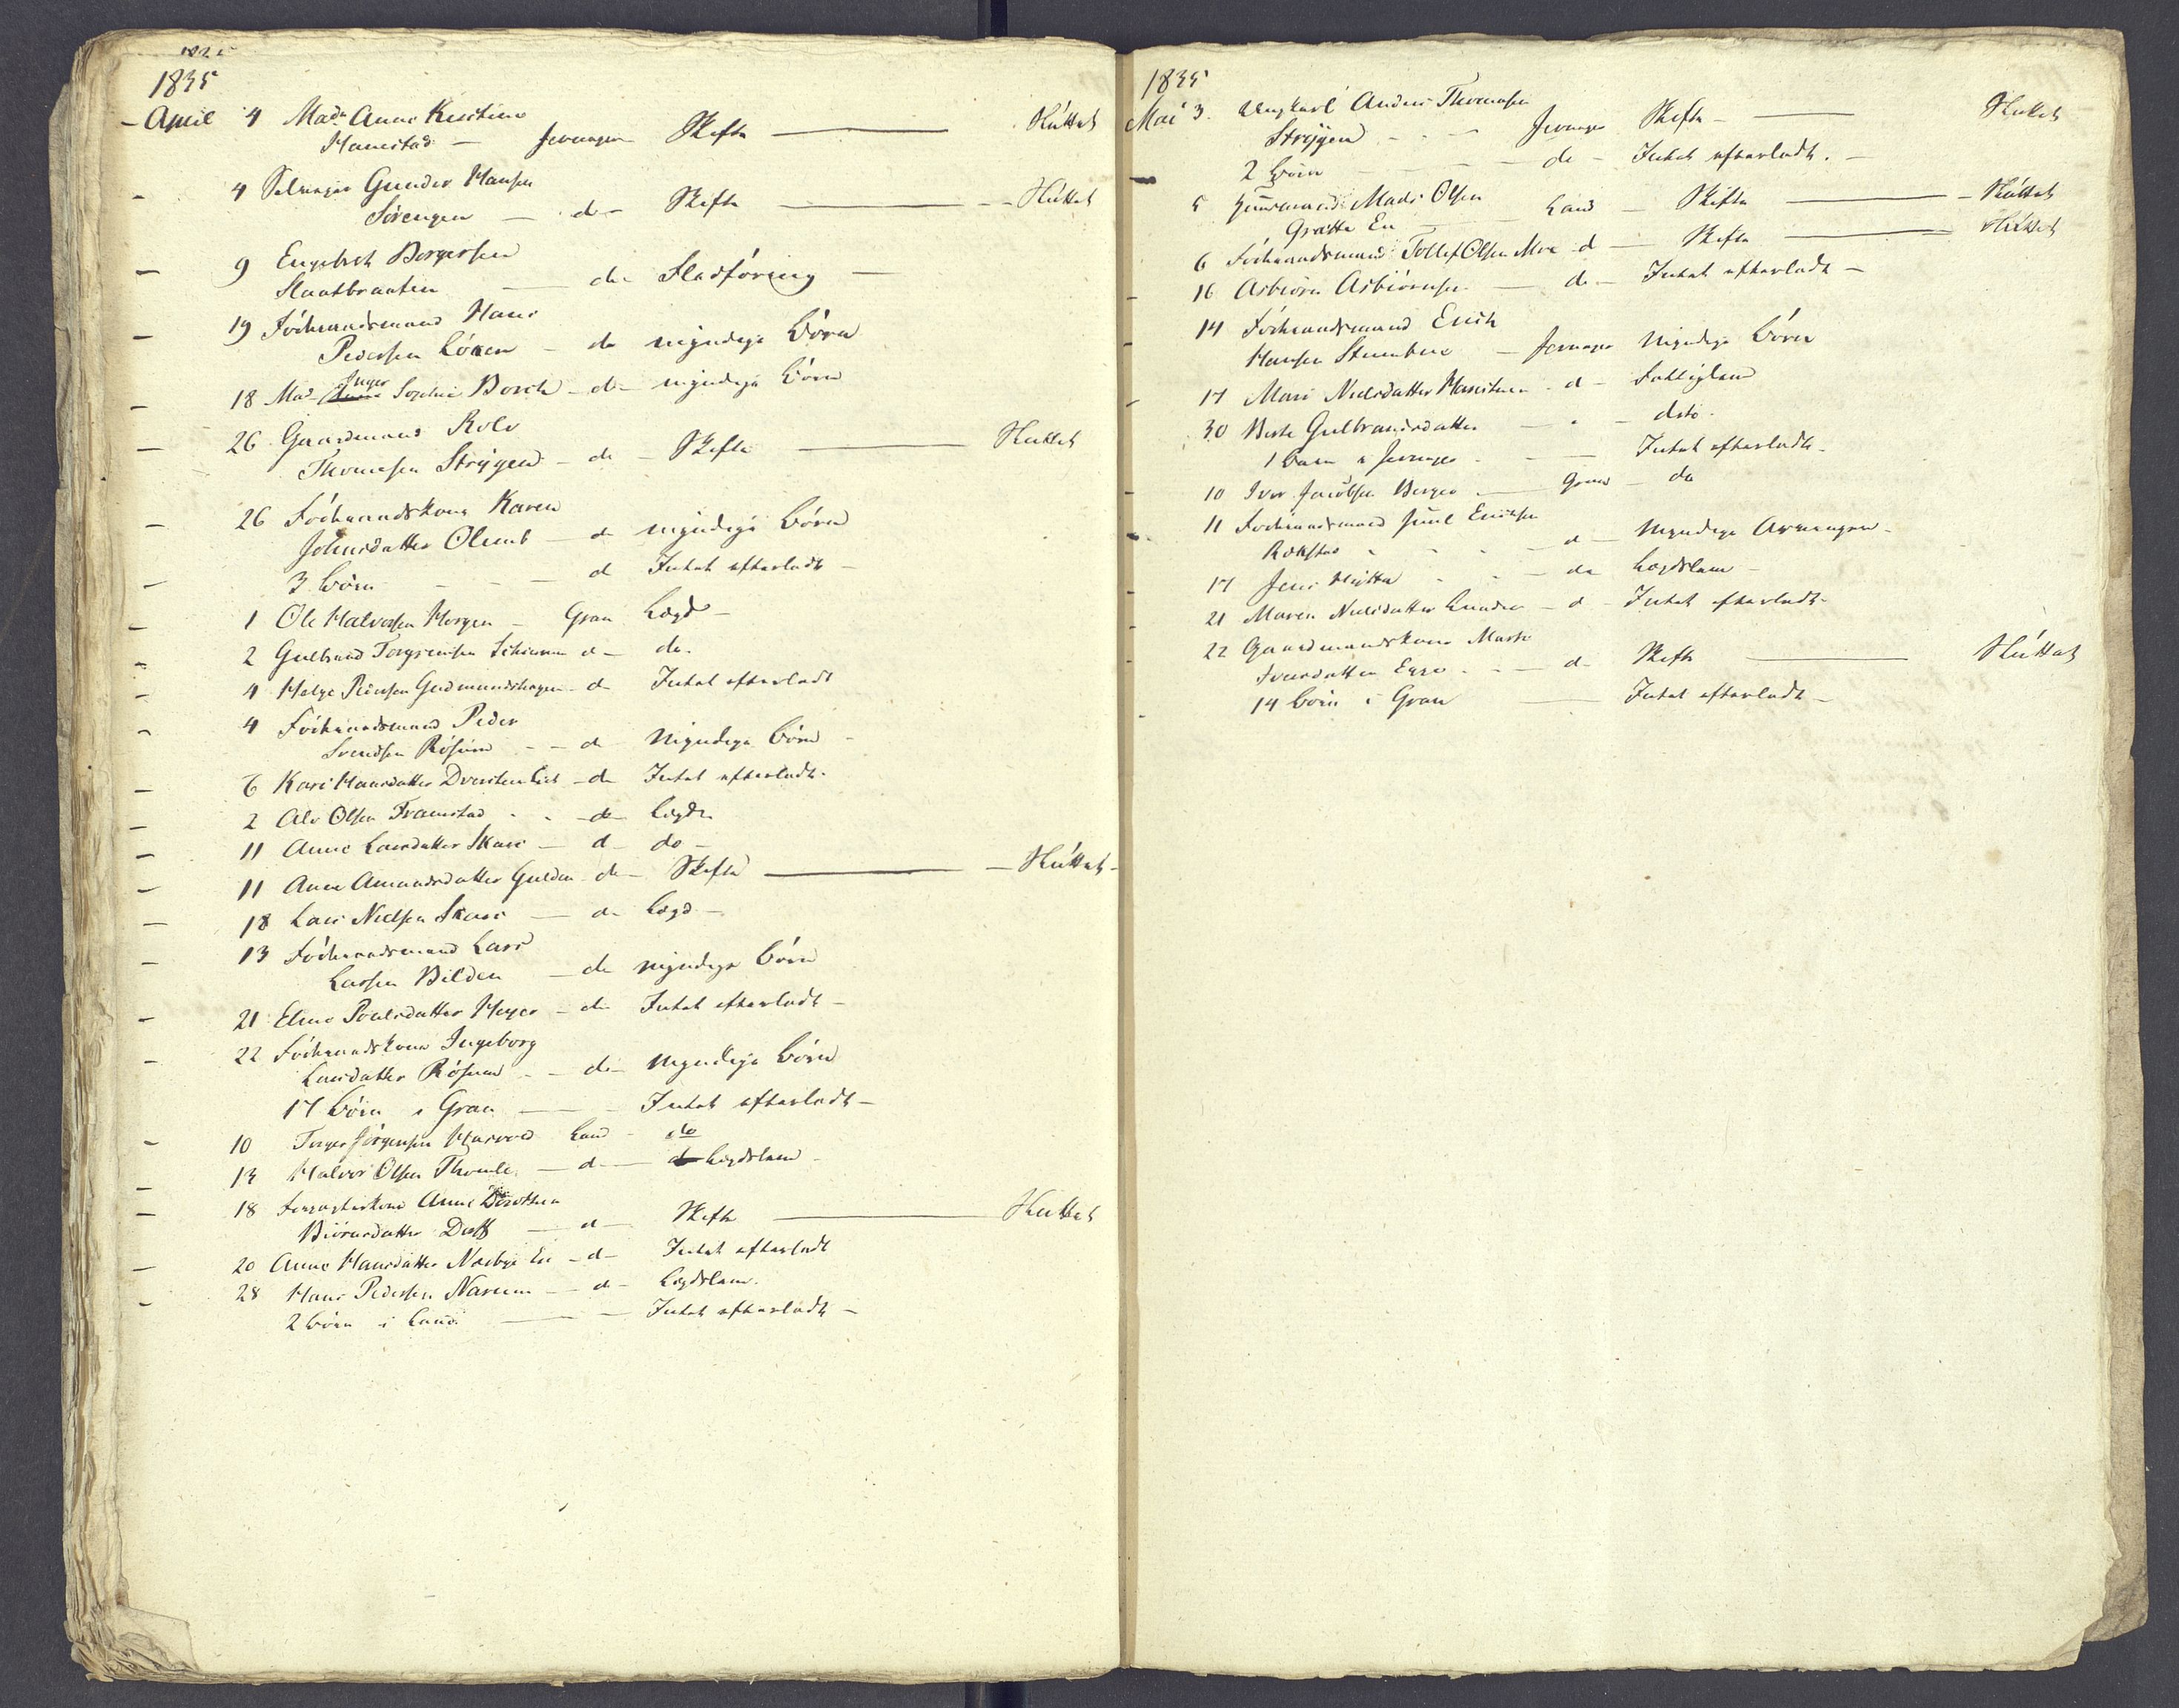 1835
April 4 Mad. Anne Kirstine
Hanestad — Jevnager Skifte — Sluttet
4 Selveier Gunder Hansen
Sørengen — do Skifte — Sluttet
9 Engebret Borgersen
Slaatbraaten — do Fladføring —
19 Föderaadsmand Hans
Pedersen Löken — do myndige Börn
18 Mad. Inger Sophie Borch — do myndige Börn
26 Gaardmand Rolv
Thomesen Strygen — do — Skifte — Sluttet
26 Föderaadskone Karen
Johnsdatter Olimb — do myndige Börn
3 Börn — do Intet efterladt —
1 Ole Halvorsen Horgen — Gran Lægd —
2 Gulbrand Torgrimsen — do.
4 Helge Pedersen Gudmundshagen — do Intet efterladt
4 Föderaadsmand Peder
Svendsen Rösum — do Myndige Börn —
6 Kari Hansdatter — do Intet efterladt.
2 Ole Olsen Framstad — do Lægds
11 Anne Larsdatter Skari — d — do —
11 Anne Amundsdatter Gulden do — Skifte — Sluttet —
18 Lars Nielsen — do Lægd —
13 Föderaadsmand Lars
Larsen Bilden — do myndige Börn
21 Eline Poulsdatter Heyer — do Intet efterladt —
22 Föderaadskone Ingeborg
Larsdatter Rösum — do — Myndige Börn
17 Börn i Gran — Intet efterladt —
10 Torger Jörgensen Land — do
13 Halvor Olsen Thomle — d — Lægdslem —
18 Anne Dorothea
Biörnsdatter — d — Skifte — Sluttet
20 Anne Hansdatter Nordbye Ei — d — Intet efterladt
28 Hans Pedersen Narum — d — Lægdslem.
2 Börn i Land — Intet efterladt —
1835
Mai 3. Ungkarl Anders Thomesen
Strygen — Jevnager Skifte — Sluttet
2 Börn — do — Intet efterladt. —
5 Huusmand Mads Olsen
Grøtte Ei — Land — Skifte — Sluttet
6 Föderaadsmand Tollef Olsen Moe d — Skifte — Sluttet
16 Asbiörn Asbiörnsen — do — Intet efterladt —
14 Föderaadsmand Erich
Hansen Stumbne — Jevnager Myndige Börn
17 Mari Nielsdatter — d — Fattiglem
30 Berte Gulbrandsdatter — dito.
1 Barn i Jevnager — Intet efterladt.
10 Iver Jacobsen Berger — Gran — do
11 Föderaadsmand Juul Erichsen
Rækstad — d — Myndige Arvinger —
17 Jens Hytta — do Lægdslem —
21 Maren Nielsdatter — d — Intet efterladt —
22 Gaardmandskone Marthe
Iversdatter Egge — d — Skifte — Sluttet
14 Börn i Gran — Intet efterladt —